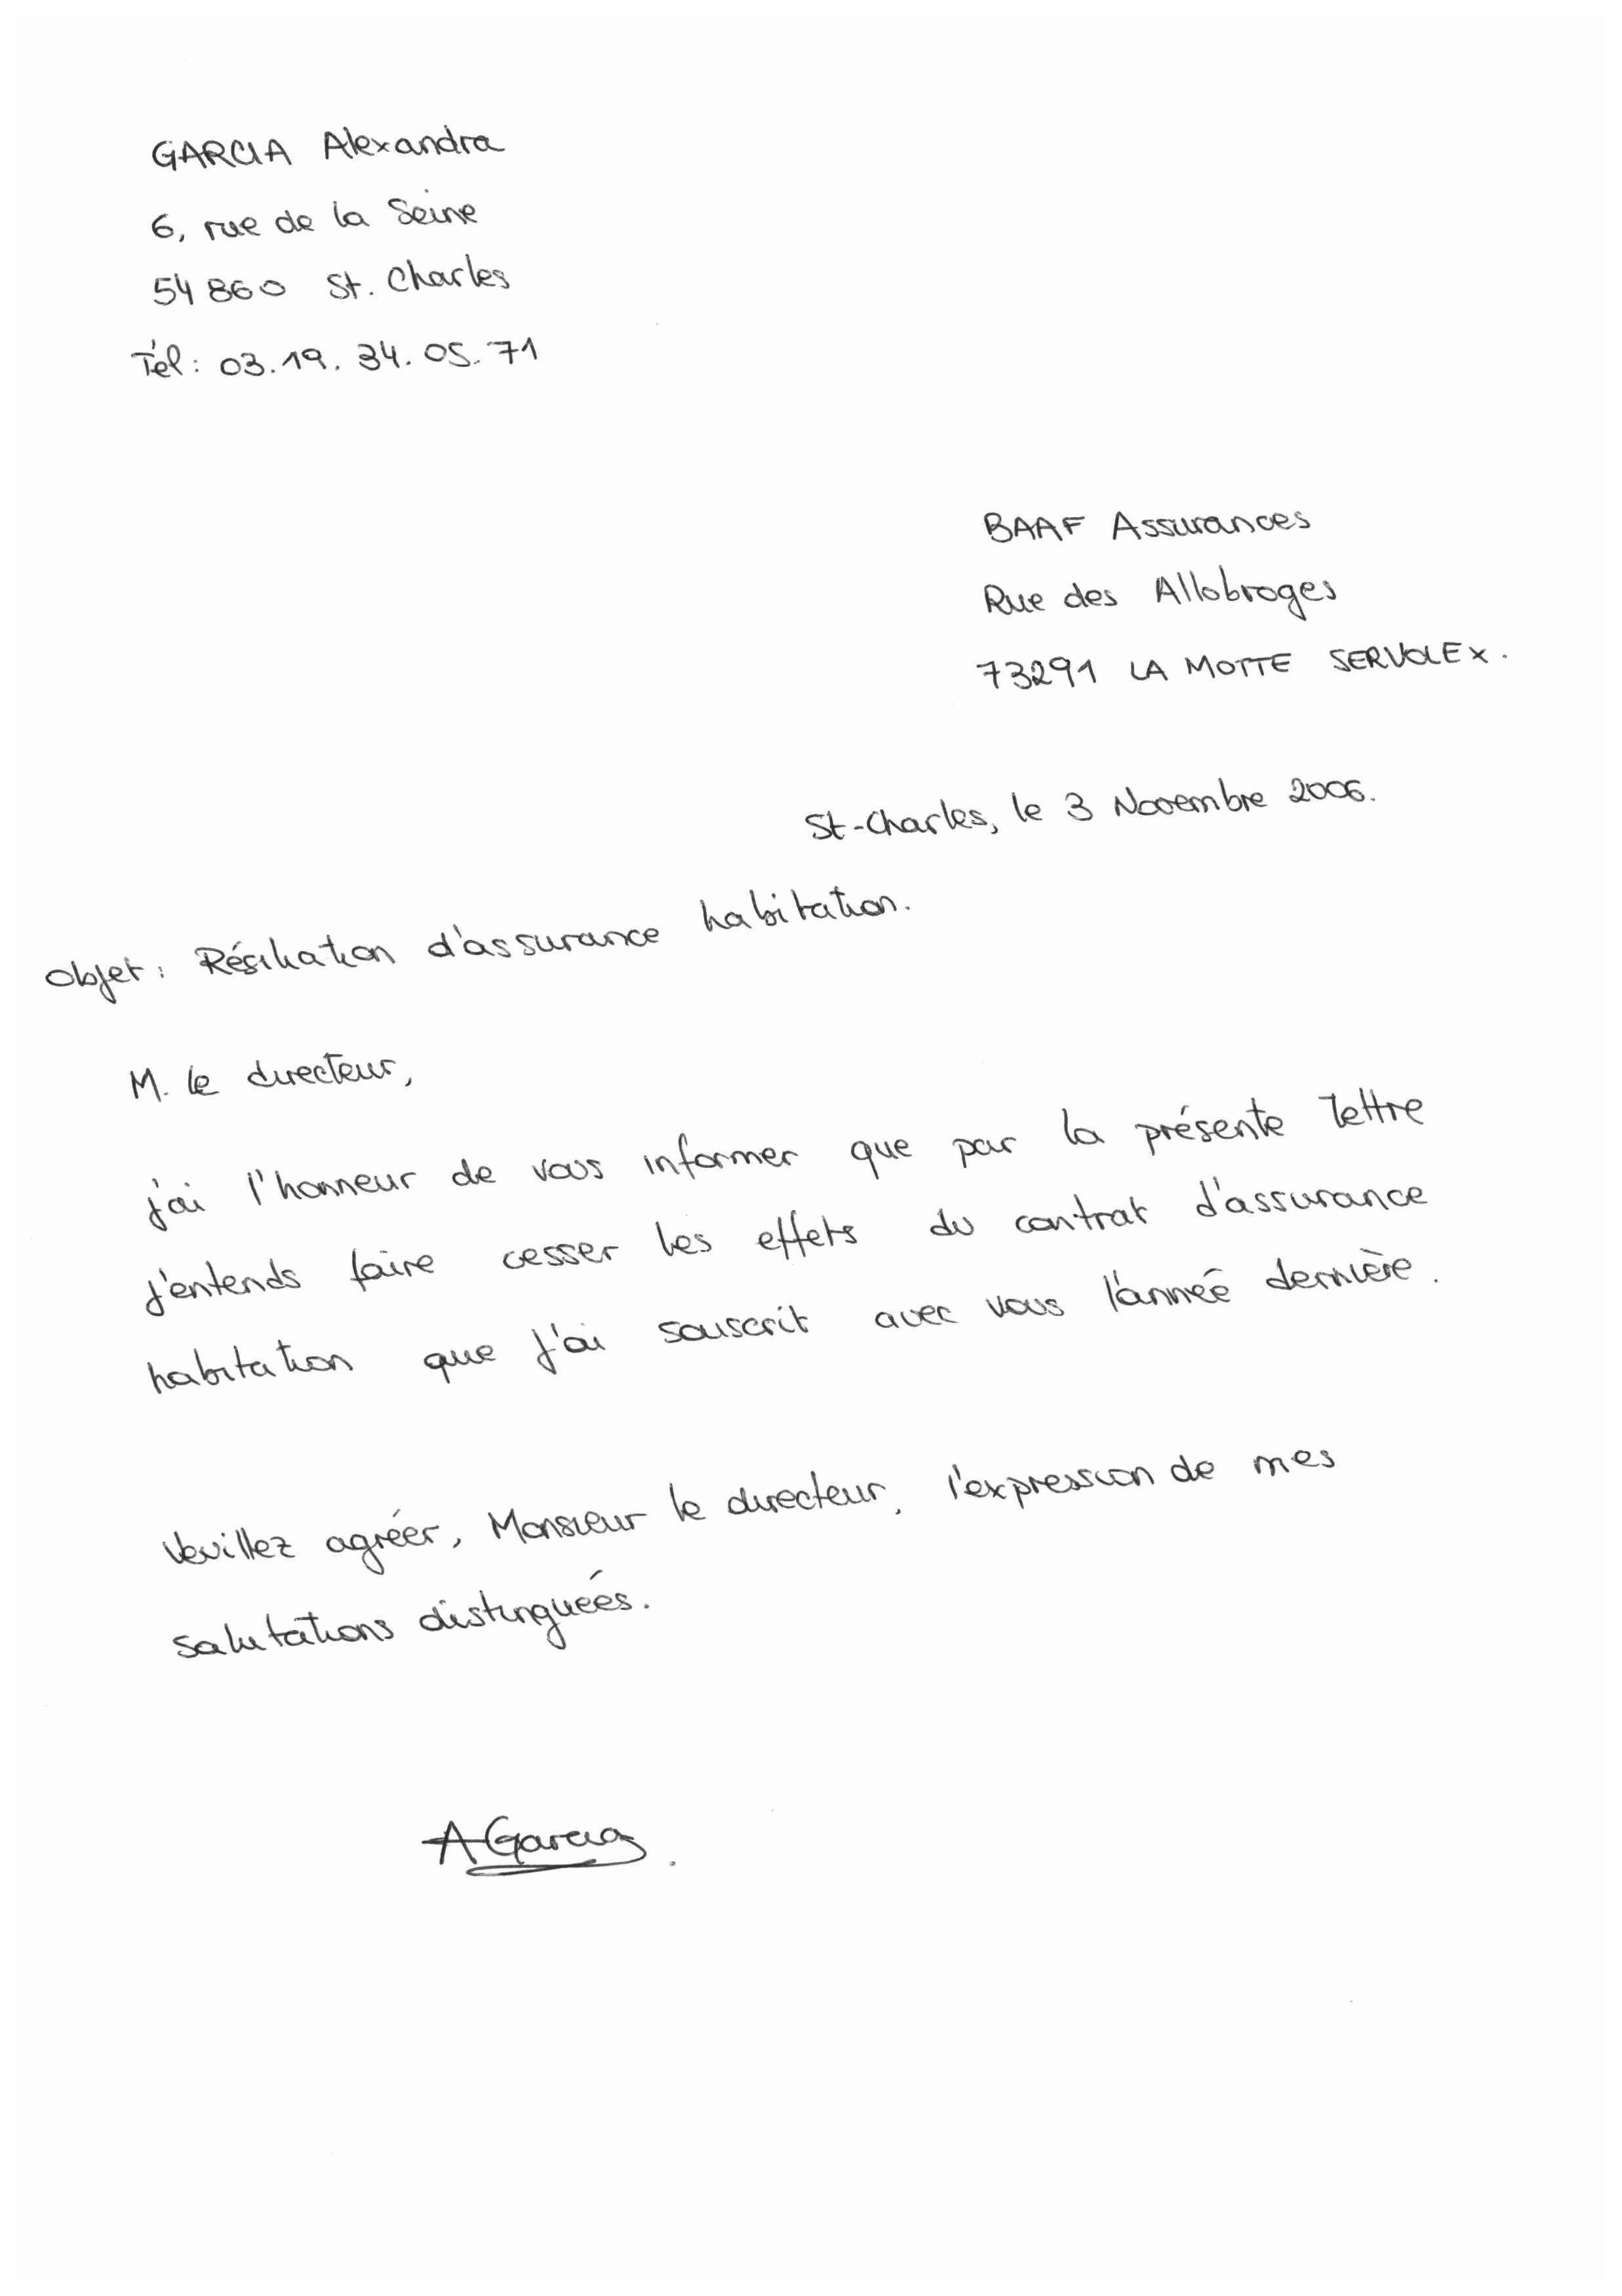 GARCIA Alexandra
6, rue de la Seine
54 860 St. Charles
Tél : 03.19.34.05.71
BAAF Assurances
Rue des Allobroges
73291 LA MOTTE SERVOLEX.
St-Charles, le 3 Novembre 2006.
Objet : Résiliation d'assurance habitation.
M. le directeur,
j'ai l'honneur de vous informer que par la présente lettre
j'entends faire cesser les effets du contrat d'assurance
habitation que j'ai souscrit avec vous l'année dernière.
Veuillez agréer, Monsieur le directeur, l'expression de mes
salutations distinguées.
AGarcia.